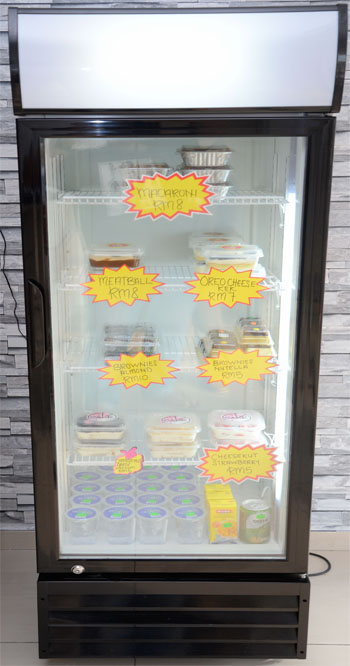 MACARONI
RM8
MEATBALL
RM8
OREO CHEESE
KEK
RM7
BROWNIES
ALMOND
RM10
BROWNIES
NUTELLA
RM13
CHEESEKUT
STRAWBERRY
RM5